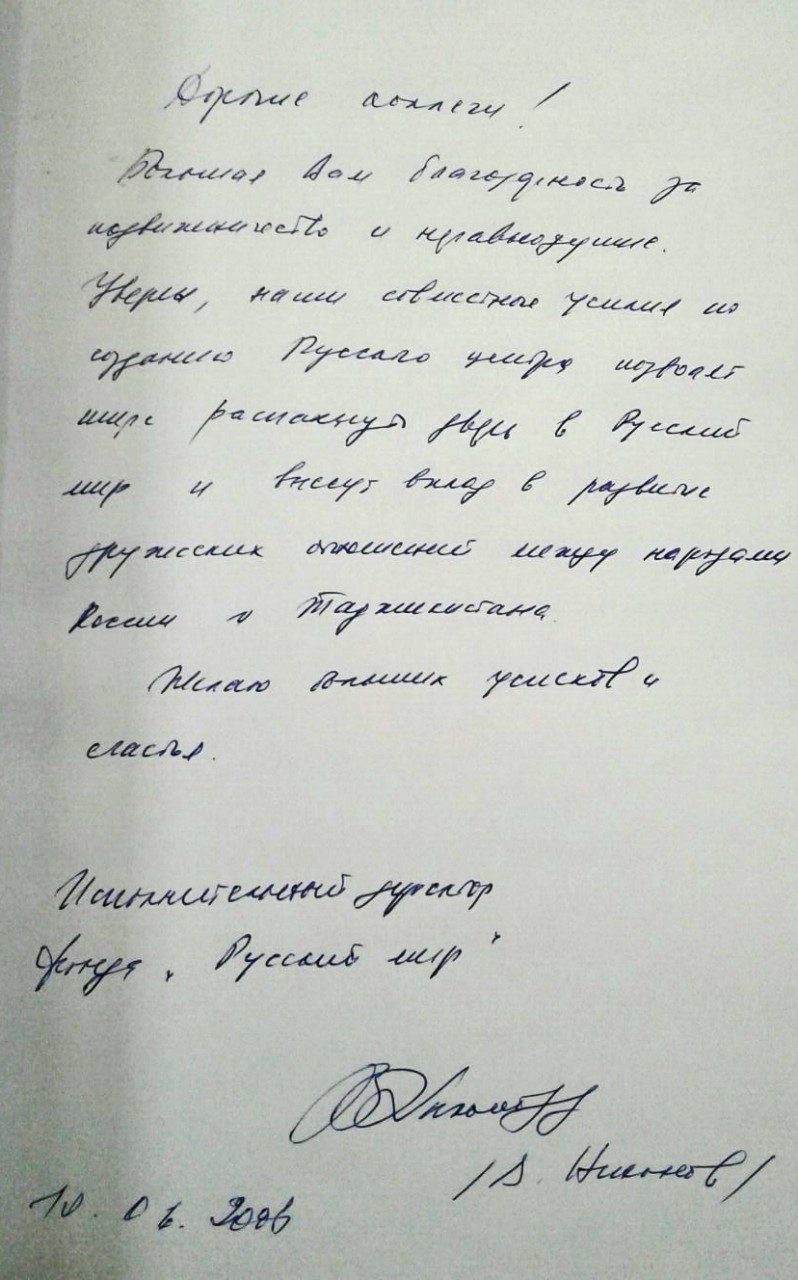 Дорогие коллеги!
Большая Вам благодарность за
подвижничество и неравнодушие.
Уверен, наши совместные усилия по
созданию Русского центра позволят
шире распахнуть дверь в Русский
мир и внесут вклад в развитие
дружеских отношений между народами
России и Таджикистана.
Желаю больших успехов и
счастья.
Исполнительный директор
фонда "Русский мир"
/В. Никонов/